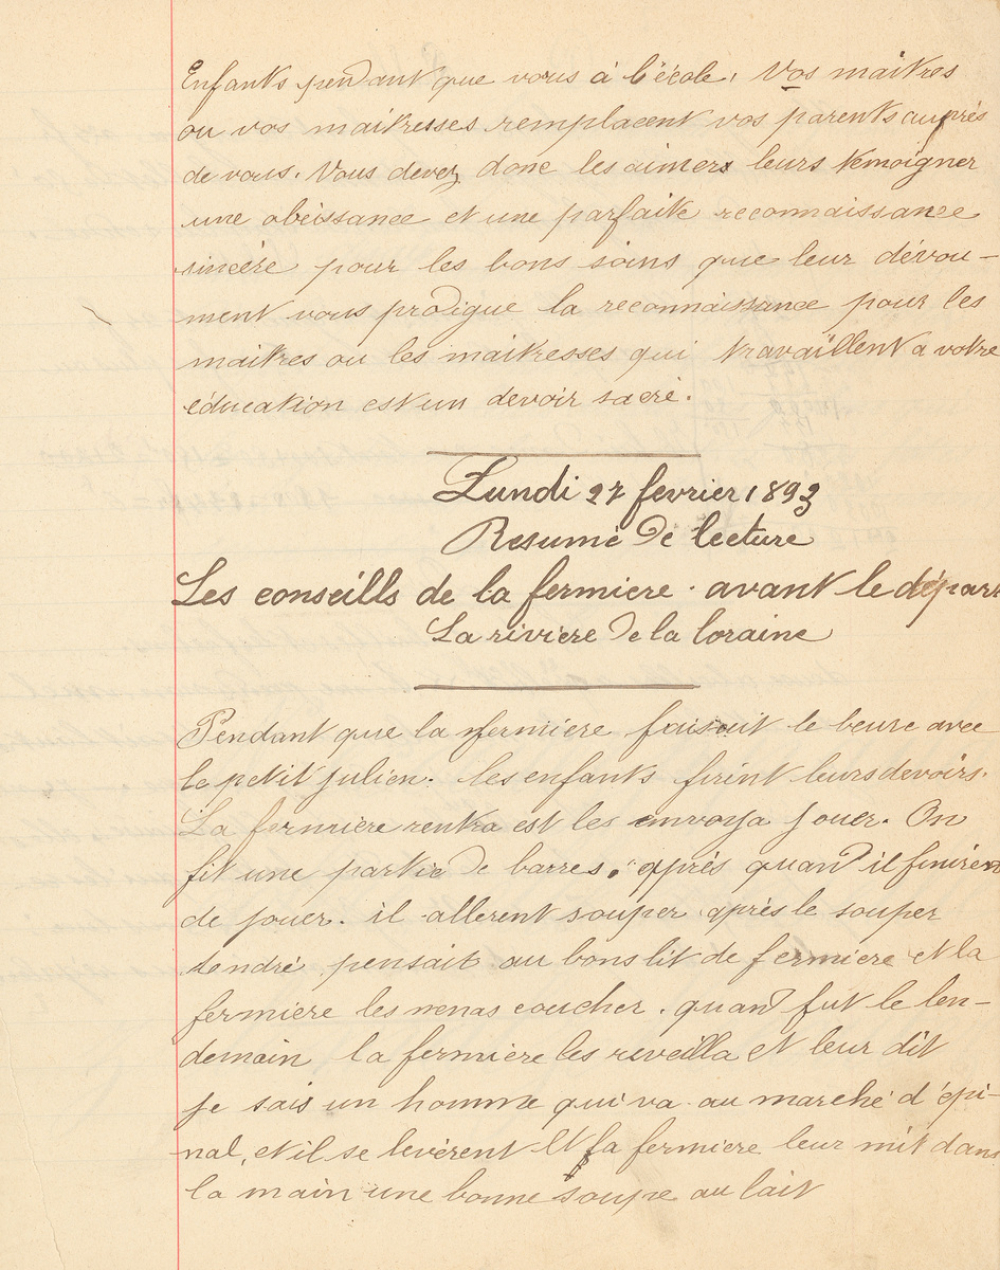 Enfants pendant que vous à l'école, Vos maitres
ou vos maitresses remplacent vos parents auprès
de vous. Vous devez donc les aimers leurs témoigner
une obeissance et une parfaite reconnaissance
sincère pour les bons soins que leur dévou-
ment vous prodigue la reconnaissance pour les
maitres ou les maitresses qui travaillent a votre
éducation est un devoir sacré.
Lundi 27 fevrier 1893
Resumé de lecture
Les conseills de la fermiere. avant le départ
La riviere de la loraine
Pendant que la fermiere faisait le beure avec
le petit julien. les enfants firint leurs devoirs.
La fermiere rentra est les envoya jouer. On
fit une partie de barres. après quand il finirent
de jouer. il allerent souper après le souper
andré pensait au bons lit de fermiere et la
fermiere les menas coucher. quand fut le len-
demain la fermiere les reveilla et leur dit
je sais un homme qui va au marché d'épi-
nal, et il se levèrent et la fermiere leur mit dans
la main une bonne soupe au lait